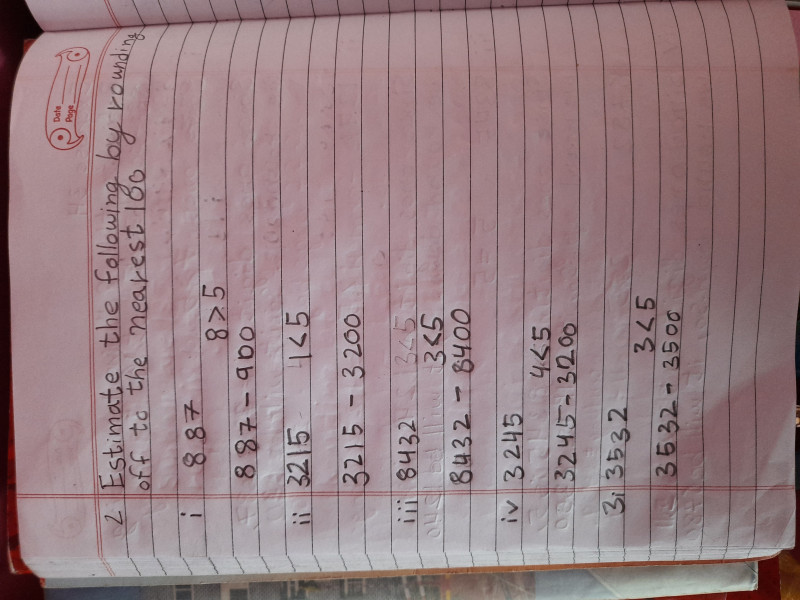 Date
Page
2 Estimate the following by rounding
off to the nearest 100
i 887
8>5
887-900
ii 3215 1<5
3215-3200
iii 8432 3<5
3<5
8432-8400
iv 3245
4<5
3245-3200
3i 3532
3<5
3532-3500